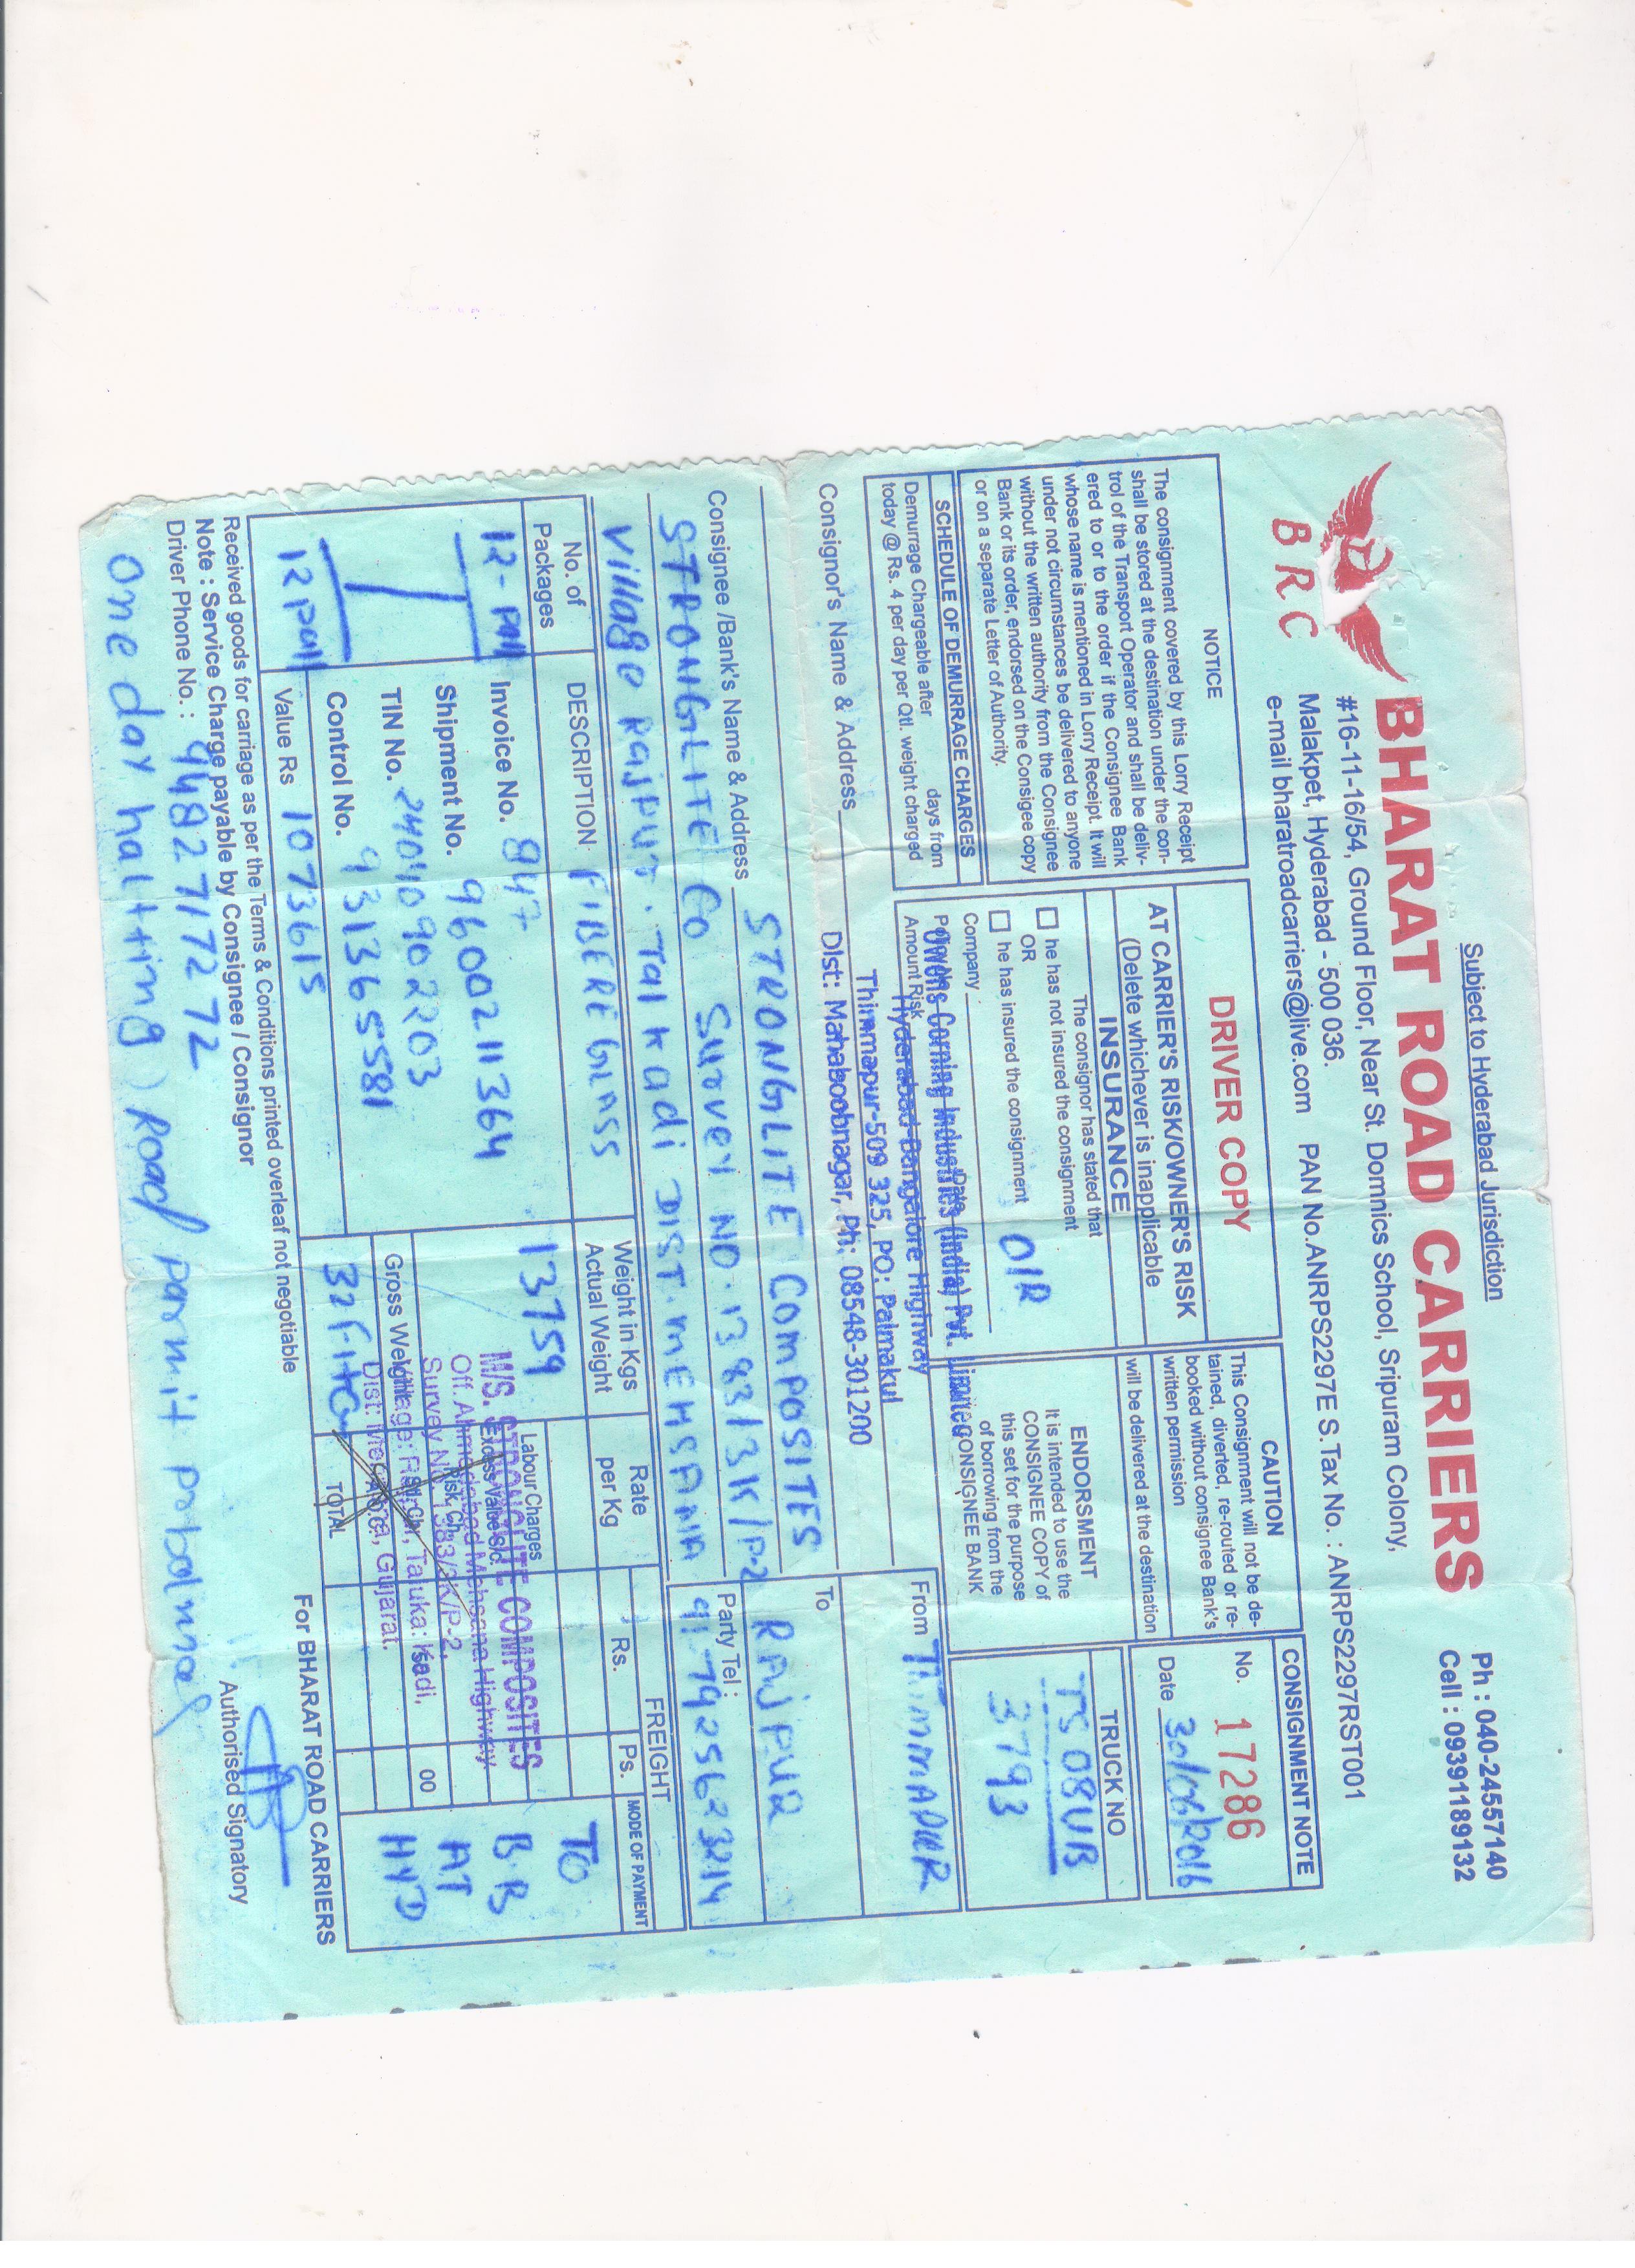 Subject to Hyderabad Jurisdiction
Ph : 040-24557140
Cell : 09391189132
BHARAT ROAD CARRIERS
BRC
#16-11-16/54, Ground Floor, Near St. Domnics School, Sripuram Colony,
Malakpet, Hyderabad - 500 036.
e-mail bharatroadcarriers@live.com PAN No.ANRPS2297E S.Tax No. : ANRPS2297RST001
NOTICE
The consignment covered by this Lorry Receipt
shall be stored at the destination under the con-
trol of the Transport Operator and shall be deliv-
ered to or to the order if the Consignee Bank
whose name is mentioned in Lorry Receipt. It will
under not circumstances be delivered to anyone
without the written authority from the Consignee
Bank or its order, endorsed on the Consignee copy
or on a separate Letter of Authority.
SCHEDULE OF DEMURRAGE CHARGES
Demurrage Chargeable after days from
today @ Rs. 4 per day per Qtl. weight charged
DRIVER COPY
AT CARRIER'S RISK/OWNER'S RISK
(Delete whichever is inapplicable
INSURANCE
The consignor has stated that
he has not insured the consignment
OR
he has insured the consignment
O/R
Company
Date
Amount Risk
CAUTION
This Consignment will not be de-
tained, diverted, re-routed or re-
booked without consignee Bank's
written permission
will be delivered at the destination
ENDORSMENT
It is intended to use the
CONSIGNEE COPY of
this set for the purpose
of borrowing from the
CONSIGNEE BANK
CONSIGNMENT NOTE
No. 17286
Date 30/06/2016
TRUCK NO
TS 08UB
3793
Owens Corning Industries (India) Pvt. Limited
Hyderabad-Bangalore Highway
Thimmapur-509 325, PO: Palmakul
Dist: Mahaboobnagar, Ph: 08548-301200
Consignor's Name & Address
From THIMMAPUR
Consignee /Bank's Name & Address STRONGLITE COMPOSITES
STRONGLITE CO Survey NO. 1383/3K/P-2
Village RAJPUR. Tal Kadi DIST. MEHSANA
To
RAJPUR
Party Tel :
917925623214
No. of Packages
DESCRIPTION FIBERE GLASS
Weight in Kgs
Actual Weight
Rate per Kg
FREIGHT
Rs. Ps.
MODE OF PAYMENT
12-Pall
Invoice No. 847
Shipment No. 9600211364
TIN No. 24010902203
Control No. 931365581
12 Pall
Value Rs 1073615
13759
Labour Charges
Excess Value S/c.
Risk Ch.
St. Ch.
A.O.C.
TOTAL
00
TO
B.B
AT
HYD
Gross Weight
M/S. STRONGLITE COMPOSITES
Off. Ahmedabad Mehsana Highway
Survey No. 1383/3K/P-2,
Village: Rajpur, Taluka: Kadi,
Dist: Mehsana, Gujarat.
Received goods for carriage as per the Terms & Conditions printed overleaf not negotiable
Note : Service Charge payable by Consignee / Consignor
Driver Phone No. : 9482717272
For BHARAT ROAD CARRIERS
Authorised Signatory
one day halting) Road parmit